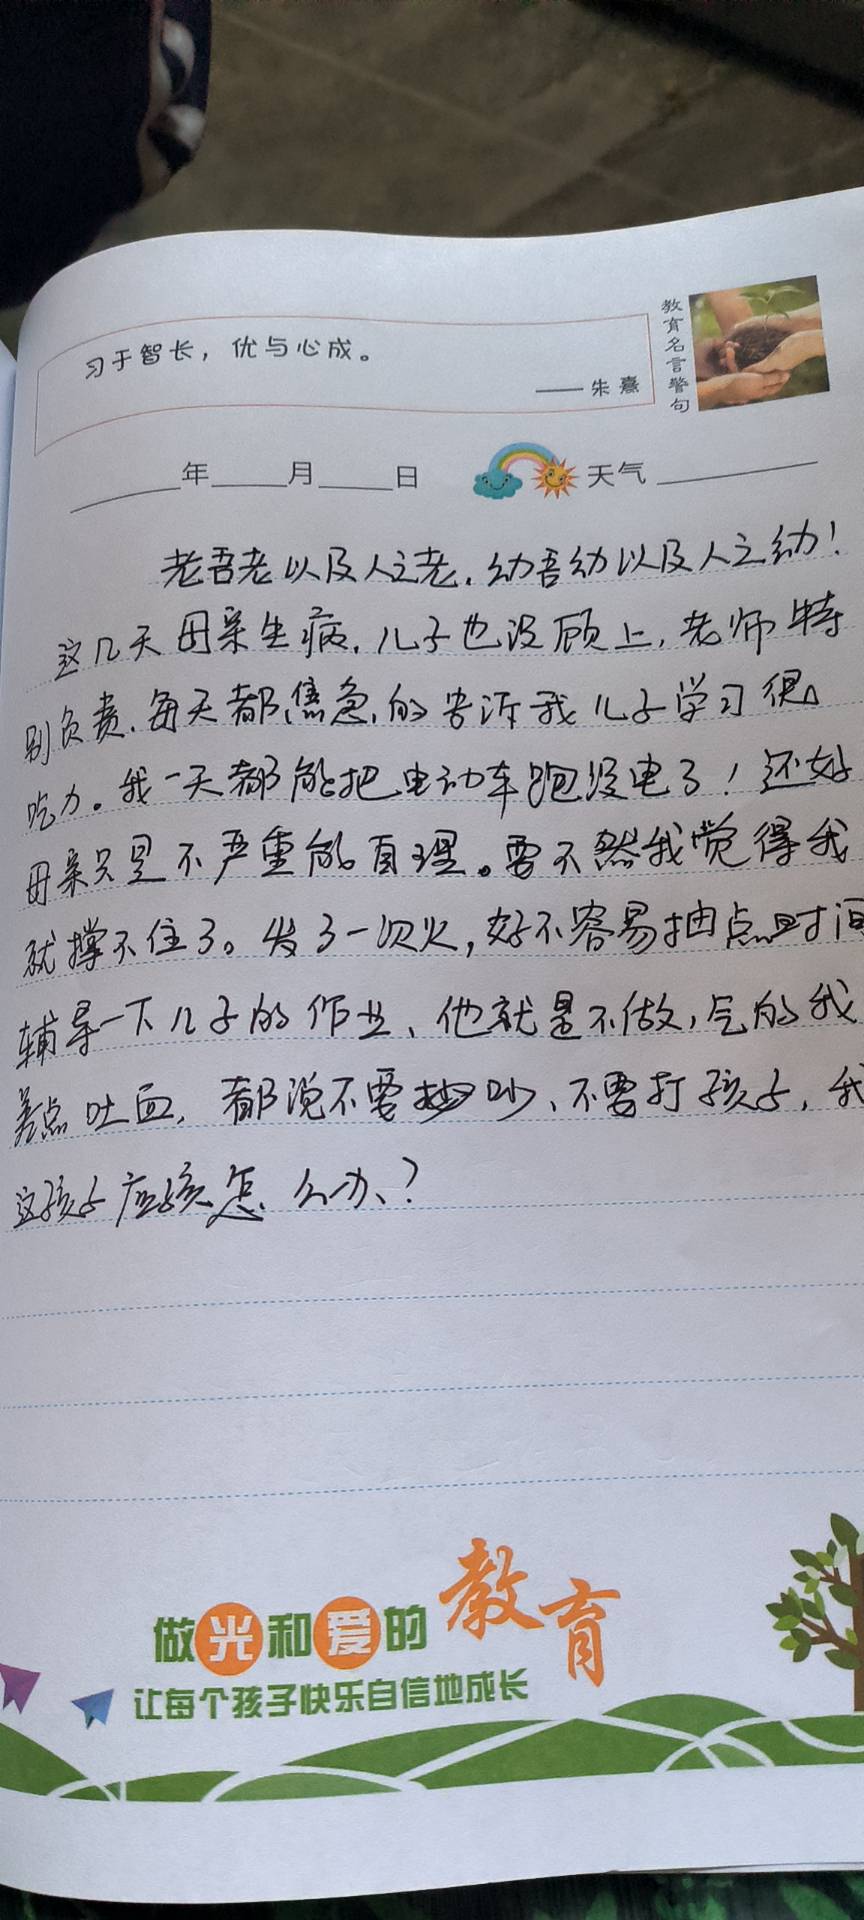 习于智长，优与心成。
—— 朱熹
教育名言警句
年 月 日 天气
老吾老以及人之老，幼吾幼以及人之幼！
这几天母亲生病，儿子也没顾上，老师特
别负责、每天都焦急的告诉我儿子学习很
吃力。我一天都能把电动车跑没电了！还好
母亲只是不严重能自理。要不然我觉得我
就撑不住了。发了一次火，好不容易抽点时间
辅导一下儿子的作业、他就是不做，气的我
差点吐血，都说不要吵、不要打孩子，我
这孩子应该怎么办、？
做光和爱的教育
让每个孩子快乐自信地成长